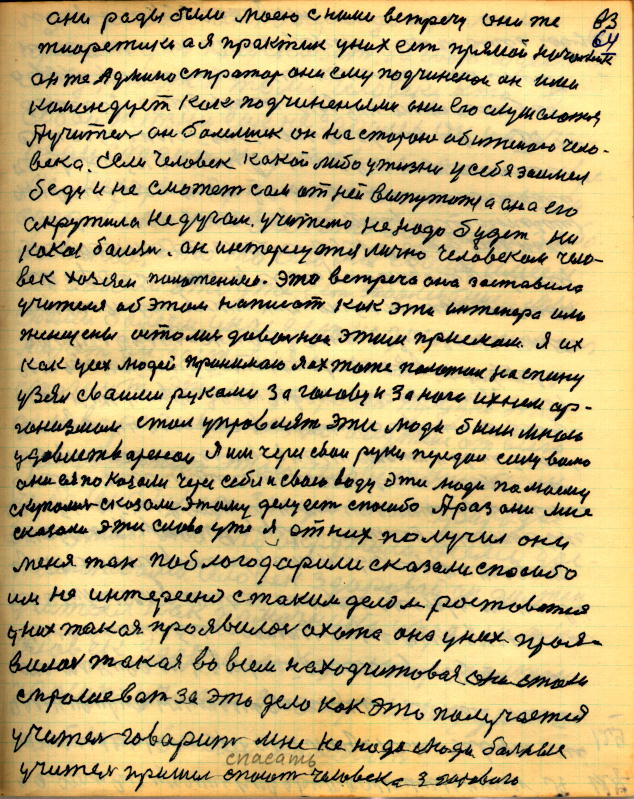 63
64
они рады были моею с ними встречу они же
тиоретики а я практик у них ест прямой начальник
он же Администратор они ему подчиненои он ими
командует как подчинеными они его слушаются
А учител он болельшик он на сторою обиженого чело-
века. Если человек какой либо у жизни у себя заимел
беду и не сможет сам от ней выпутатся а она его
акружила недугом. учителю не надо будет ни
какои болезн. он интересуется лично человеком чело-
век хозяен положению. Это встреча она заставила
учителя об этом написат как эти инженера или
женщены осталис доволное этим приемам. Я их
как усех людей принимаю я их тоже положил на спину
узял своими руками за голову и за ноги ихнем ор-
ганизмом стал управлят эти люди были мною
удовлетвореною Я им через свои руки передал силу волю
они ея показали через себя и свою воду эти люди по моему
сказали этому делу ест спосибо А раз они мне
сказали эти слова уже я от них получил они
меня так поблогодарили сказали спосибо
им не интересно с таким делом ростоватся
у них такая проявилас охота она у них прояв-
вилас такая во всем находчитовая они стали
спрашеват за это дело как это получается
учител говорит мне не надо люди болные
спасать
учител пришел спасат человека з здорового